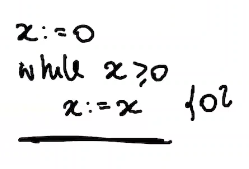 x:=0
while x⩾0
x:=x {0}